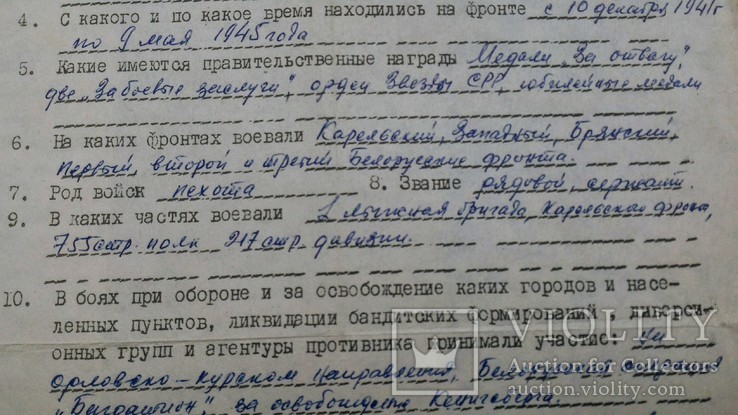 4. С какого и по какое время находились на фронте с 10 декабря 1941г
по 9 мая 1945 года
5. Какие имеются правительственные награды Медали „За отвагу",
две „За боевые заслуги", орден Звезды СРР, юбилейные медали
6. На каких фронтах воевали Карельский, Западный, Брянский,
первый, второй и третий Белорусские фронта.
7. Род войск пехота 8. Звание рядовой, сержант.
9. В каких частях воевали 2 лыжная бригада, Карельский фронт,
755 стр. полк 217 стр. дивизии.
10. В боях при обороне и за освобождение каких городов и насе-
ленных пунктов, ликвидации бандитских формирований , диверси-
онных групп и агентуры противника принимали участие: На
Орловско-Курском направлении, Белорусской операции
„Багратион", за освобождение Кенигсберга.
VIOLITY
Auction for Collectors
auction.violity.com